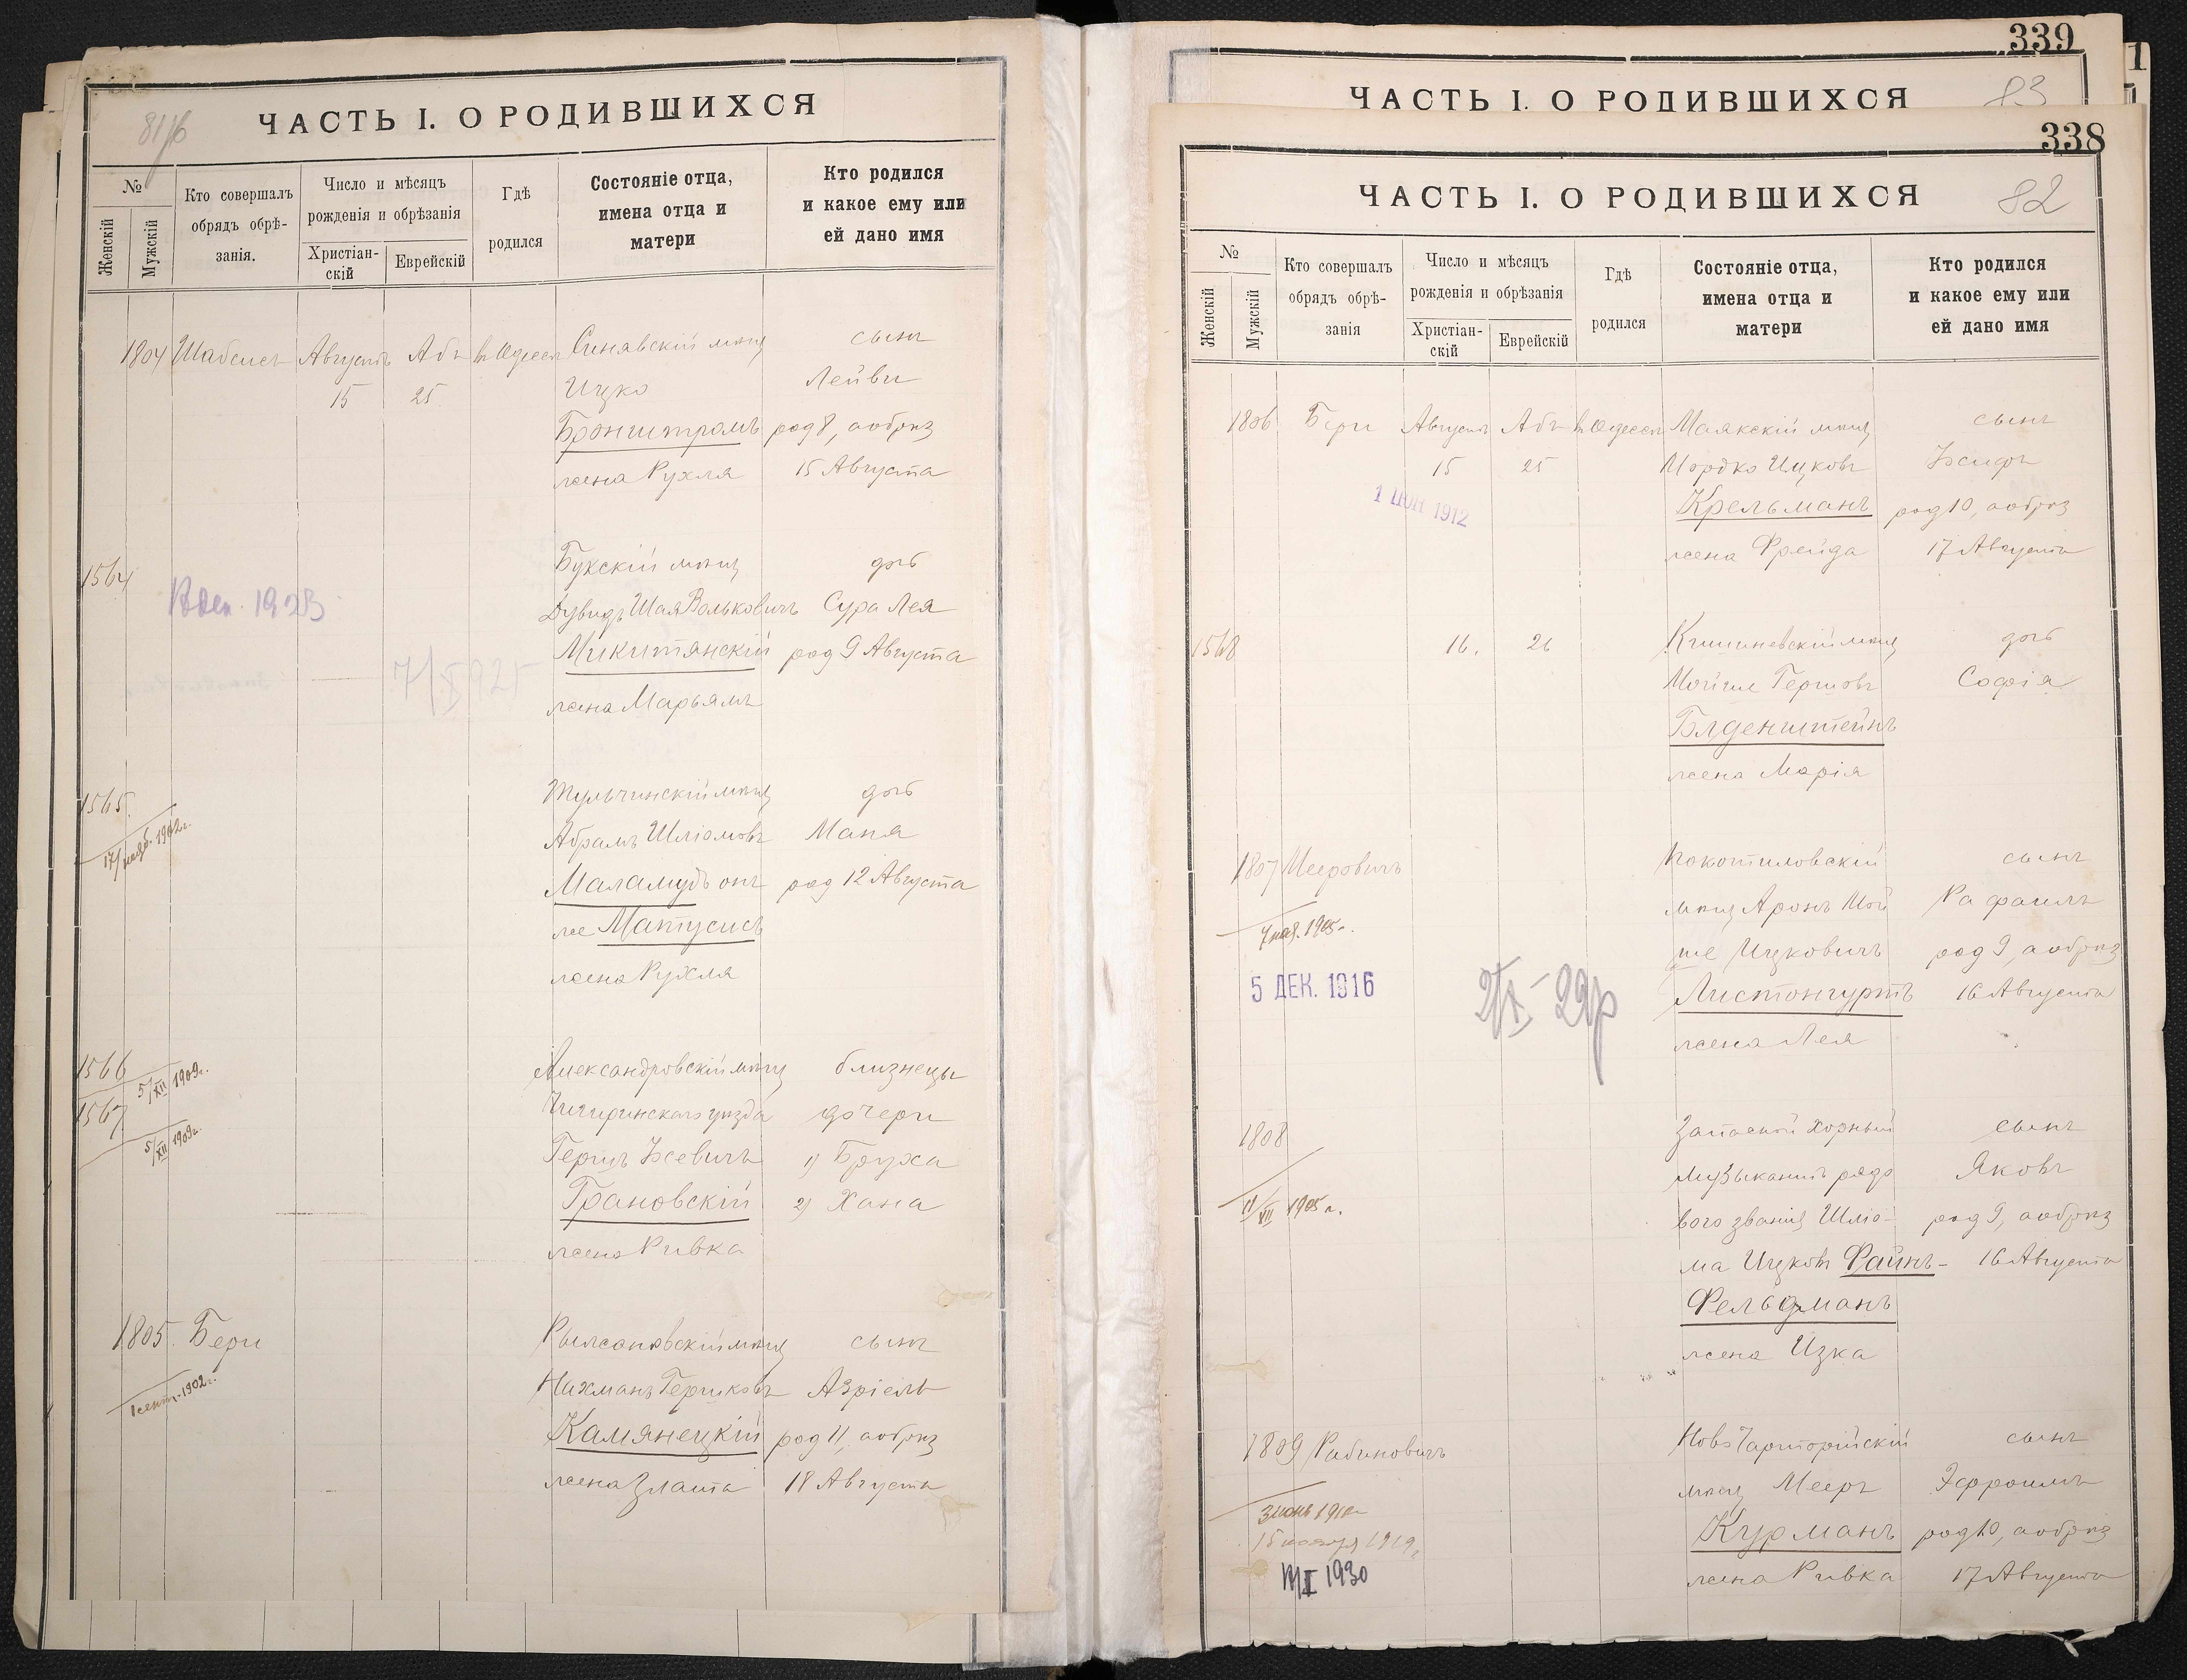 ЧАСТЬ I. О РОДИВШИХСЯ
№
Женскій
Мужскій
Кто совершалъ
обрядъ обрѣ-
занія.
Число и мѣсяцъ
рожденія и обрѣзанія
Христіан-
скій
Еврейскій
Гдѣ
родился
Состояніе отца,
имена отца и
матери
Кто родился
и какое ему или
ей дано имя
1804 Шабсисъ Августъ Абъ въ Одессѣ Синявскій мѣщ сынъ
15 25 Ицко Лейви
Бронштромъ род 8, а обрѣз
жена Рухля 15 Августа
1564 Букскій мѣщ дочь
Дувидъ Шая Вольковичъ Сура Лея
Микитянскій род 9 Августа
жена Марьямъ
1565 Тульчинскій мѣщ дочь
Абрамъ Шліомовъ Маня
Маламудъ онъ род 12 Августа
же Матусисъ
жена Рухля
1566 5/XII 1909г. Александровскій мѣщ близнецы
1567 Чигиринскаго уѣзда дочери
5/XII 1909г. Гершъ Іосевичъ 1) Бруха
Грановскій 2) Хана
жена Ривка
1805 Бери сынъ
1 сент. 1902г. Нахманъ Гершковъ Азріель
Камянецкій род 11, а обрѣз
жена Злата 18 Августа
339
ЧАСТЬ I. О РОДИВШИХСЯ 83
338
ЧАСТЬ I. О РОДИВШИХСЯ 82
№
Женскій
Мужскій
Кто совершалъ
обрядъ обрѣ-
занія
Число и мѣсяцъ
рожденія и обрѣзанія
Христіан-
скій
Еврейскій
Гдѣ
родился
Состояніе отца,
имена отца и
матери
Кто родился
и какое ему или
ей дано имя
1806 Бери Августъ Абъ въ Одессѣ Маякскій мѣщ сынъ
15 25 Мордко Ицковъ Іосифъ
1912 Крельманъ род 10, а обрѣз
жена Фрейда 17 Августа
1568 16. 26 Кишиневскій мѣщ дочь
Мойше Гершовъ Софія
Блденштейнъ
жена Марія
1807 Мееровичъ Покотиловскій сынъ
мѣщ Аронъ Мой Рафаилъ
1905 ше Ицковичъ род 9, а обрѣз
5 ДЕК. 1916 Листонгуртъ 16 Августа
жена Лея
1808 Запасной хорный сынъ
музыкантъ рядо Яковъ
11/VII 1905 г. вого званія Шліо- род 9, а обрѣз
ма Ицковъ Файнъ- 16 Августа
Фельдманъ
жена Изка
1809 Рабиновичъ НовоЧарторійскій сынъ
мѣщ Мееръ Эфроимъ
Курманъ род 10, а обрѣз
1930 жена Ривка 17 Августа